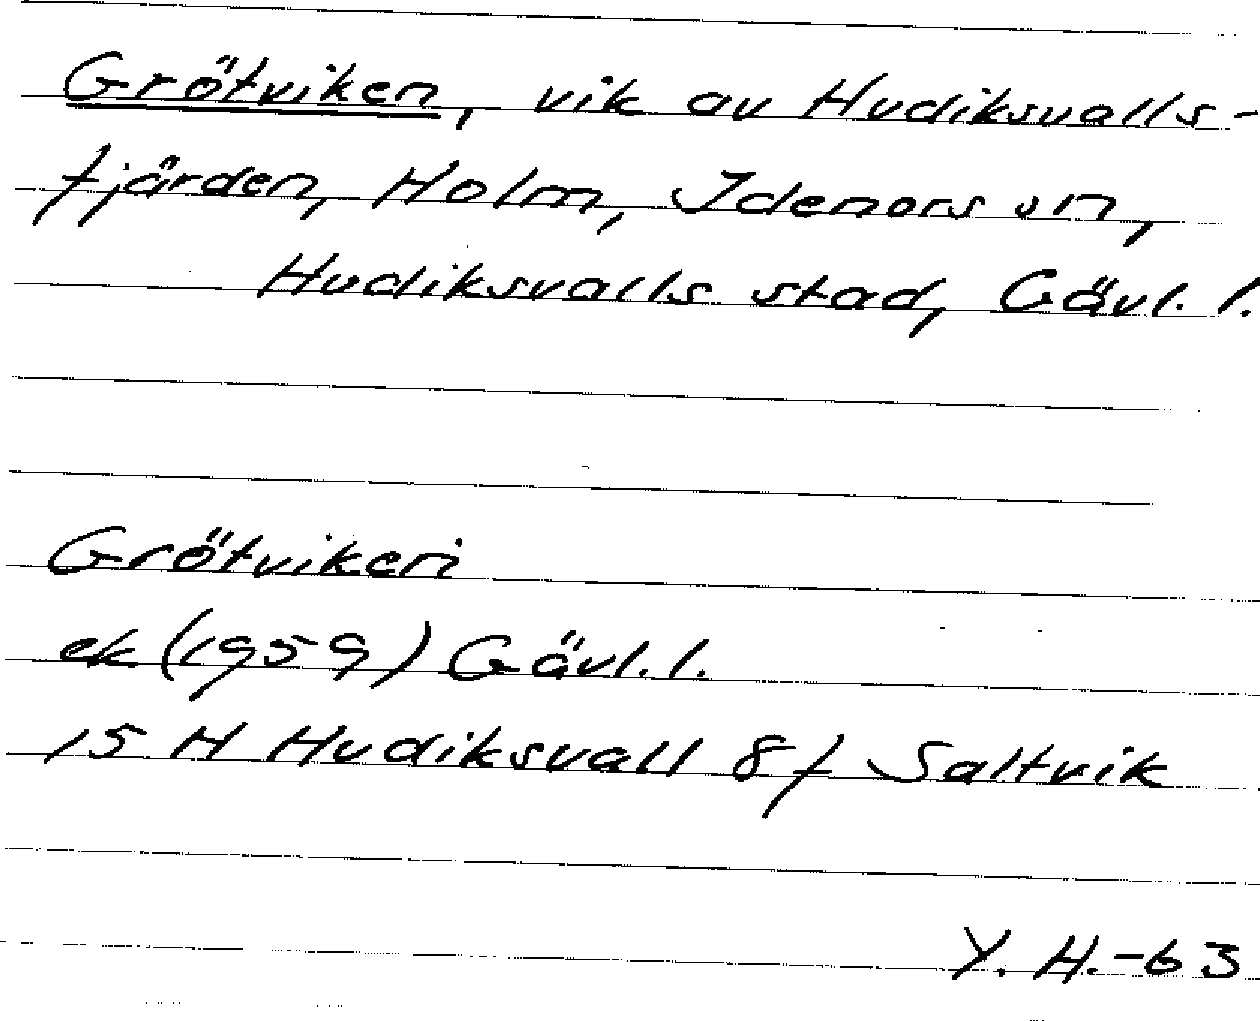 Grötviken, vik av Hudiksvalls-
fjärden, Holm, Idenors sn,
Hudiksvalls stad, Gävl. l.
Grötviken
ek (1959) Gävl. l.
15 H Hudiksvall 8f Saltvik
Y. H.-63